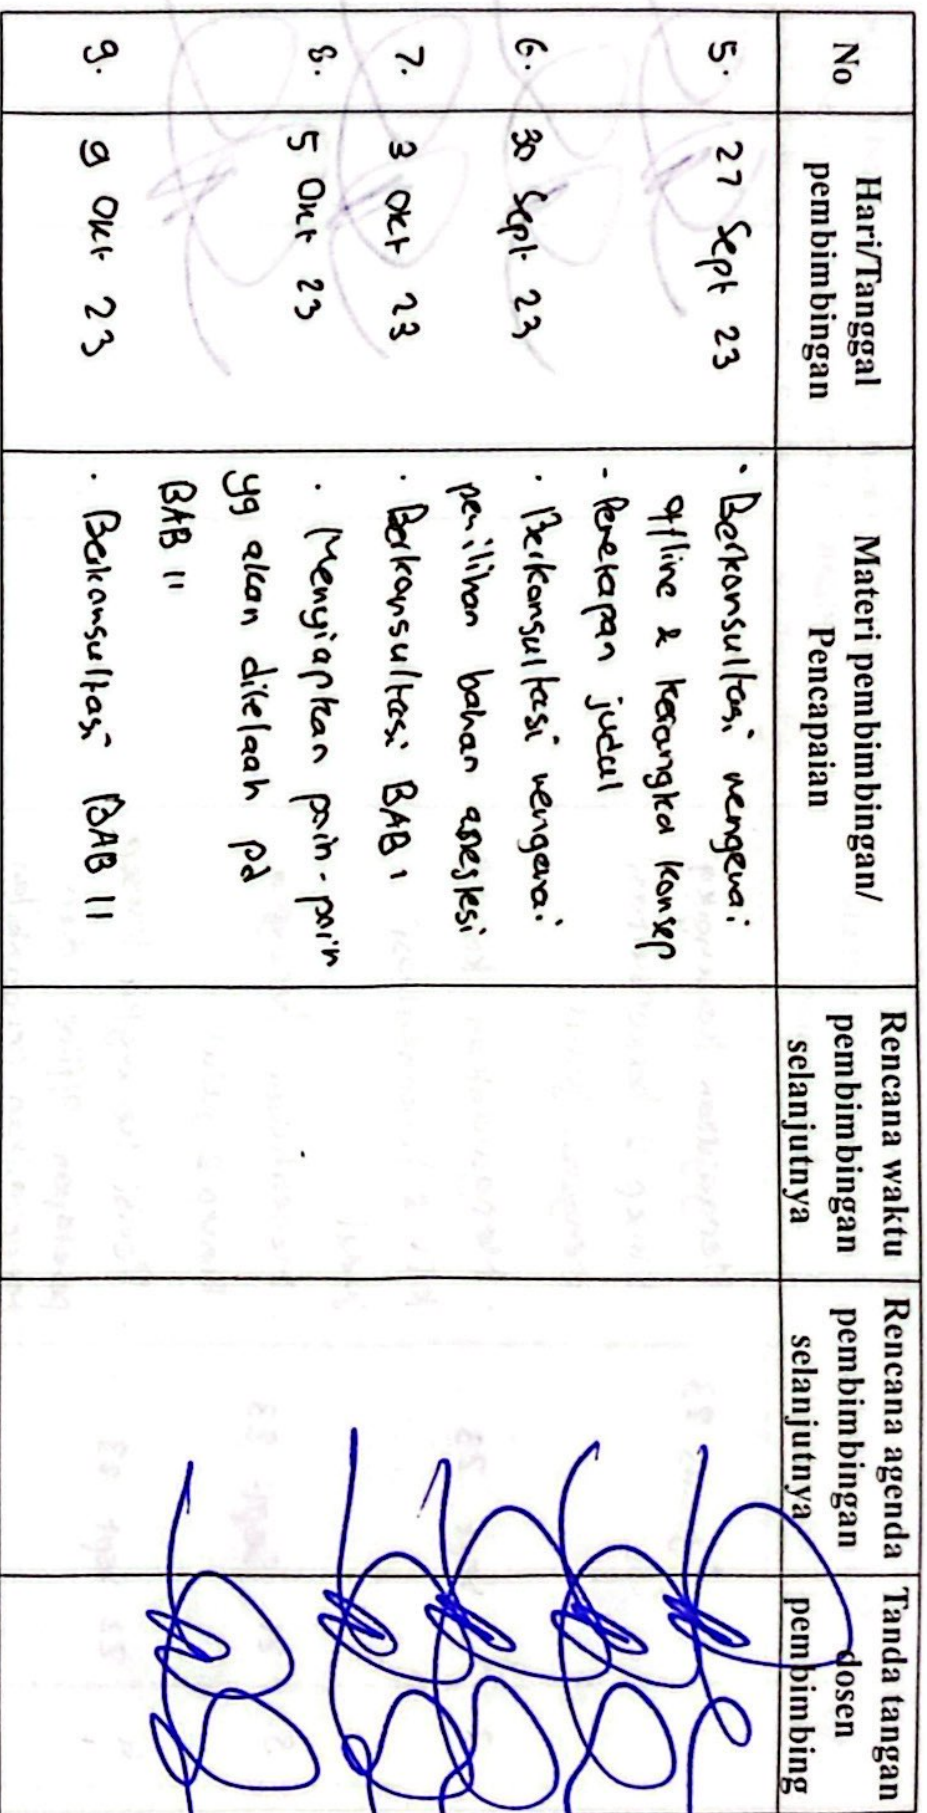 No
Hari/Tanggal
pembimbingan
Materi pembimbingan/
Pencapaian
Rencana waktu
pembimbingan
selanjutnya
Rencana agenda
pembimbingan
selanjutnya
Tanda tangan
dosen
pembimbing
5.
27 Sept 23
• Berkonsultasi mengenai
offline & kerangka konsep
- Penetapan judul
6.
30 Sept 23
• Berkonsultasi mengenai
pemilihan bahan anestesi
7.
3 Okt 23
• Berkonsultasi BAB 1
8.
5 Okt 23
• Menyiapkan poin-poin
yg akan ditelaah pd
BAB II
9.
9 Okt 23
• Berkonsultasi BAB II